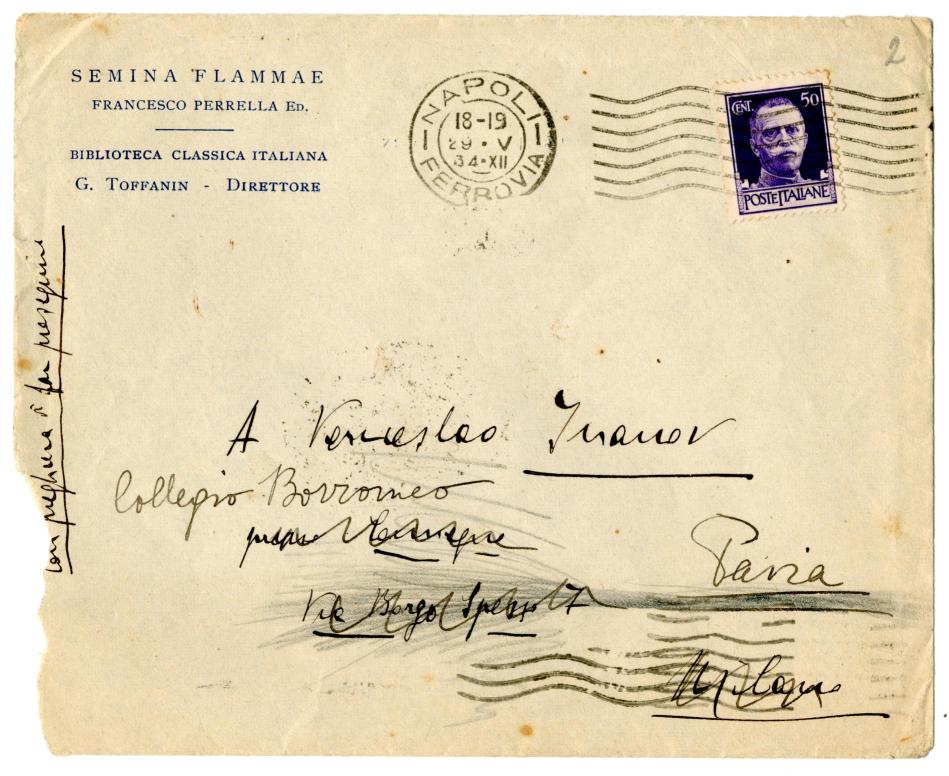 SEMINA FLAMMAE
FRANCESCO PERRELLA ED.
BIBLIOTECA CLASSICA ITALIANA
G. TOFFANIN - DIRETTORE
NAPOLI
18-19
29 · V
34 · XII
FERROVIA
CENT. 50
POSTE ITALIANE
2
con preghiera di far proseguire
A Venceslao Ivanov
Collegio Borromeo
presso
Pavia
Via Borgo Spesso 7
Milano